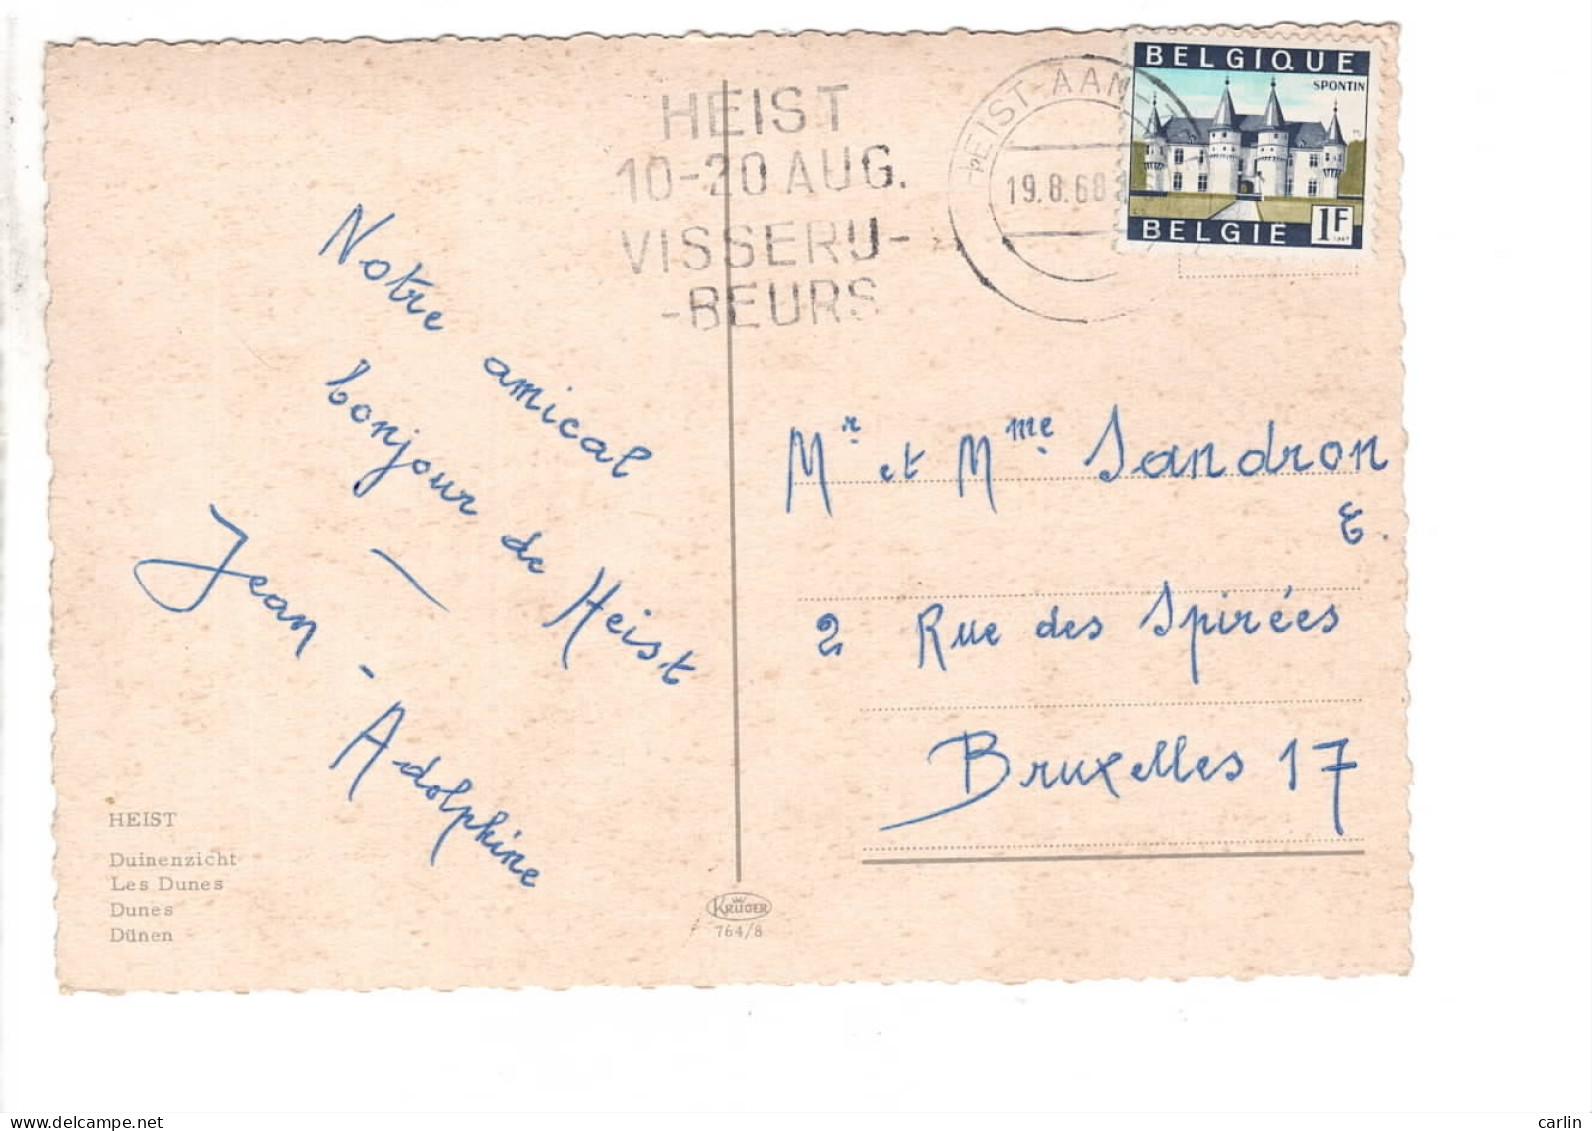 HEIST
10-20 AUG.
VISSERIJ-
-BEURS
HEIST-AAN-
19.8.68
BELGIQUE
SPONTIN
BELGIË
1F
1967
Notre amical
bonjour de Heist
—
Jean - Adolphine
Mr et Mme Sandron
E.
2 Rue des Spirées
Bruxelles 17
HEIST
Duinenzicht
Les Dunes
Dunes
Dünen
KRÜGER
764/8
carlin